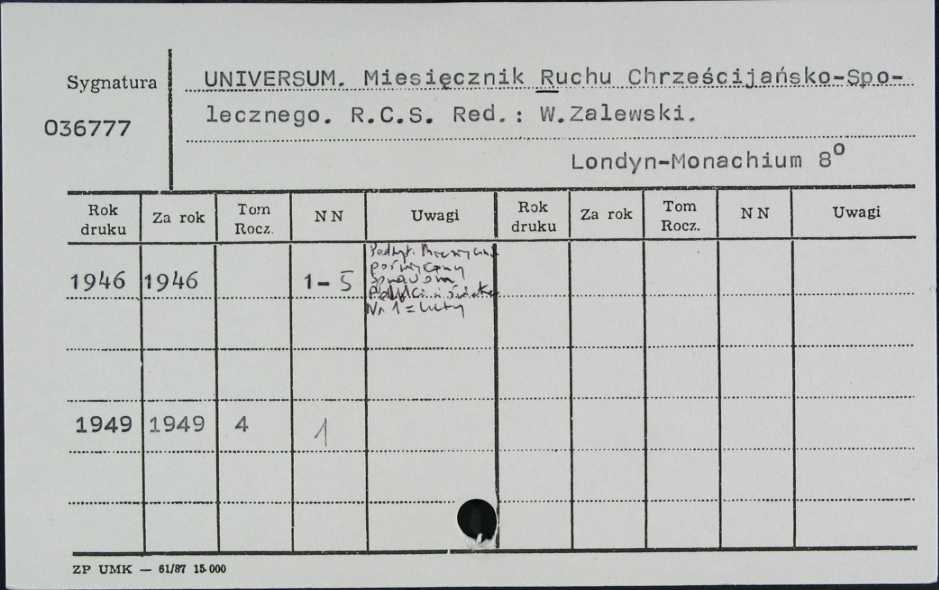 Sygnatura
036777
UNIVERSUM. Miesięcznik Ruchu Chrześcijańsko-Spo-
lecznego. R.C.S. Red.: W.Zalewski.
Londyn-Monachium 8º
Rok druku Za rok Tom Rocz. NN Uwagi Rok druku Za rok Tom Rocz. NN Uwagi
1946 1946 1-5
poświęcony
sprawom
Polski i świata
Nr 1 = luty
1949 1949 4 1
ZP UMK — 61/87 15 000